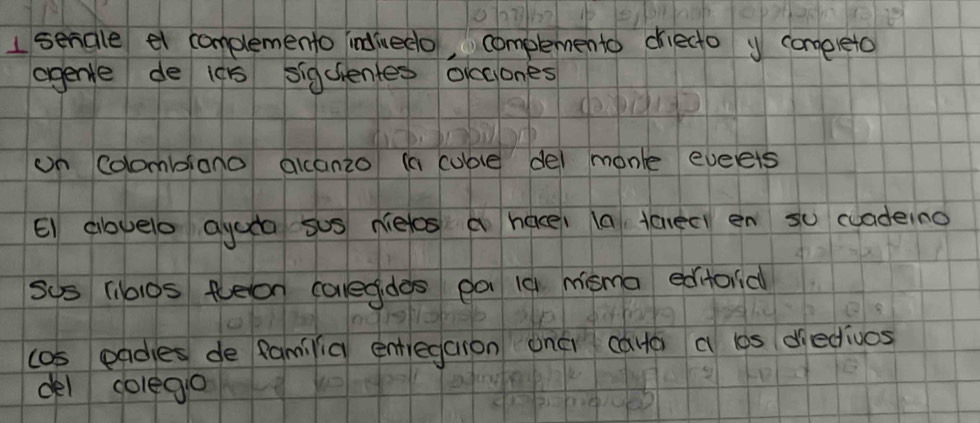 1 señale el complemento indirecto, complemento directo y completo
agente de las siguientes oraciones
Un Colombiano alcanzo la cubre del monte everets
El abuelo ayuda sus nietos a hacer la tarea en su cuaderno
Sus libros fueron coregidos por la misma editorial
Los padres de familia entregaron una carta a los directivos
del colegio